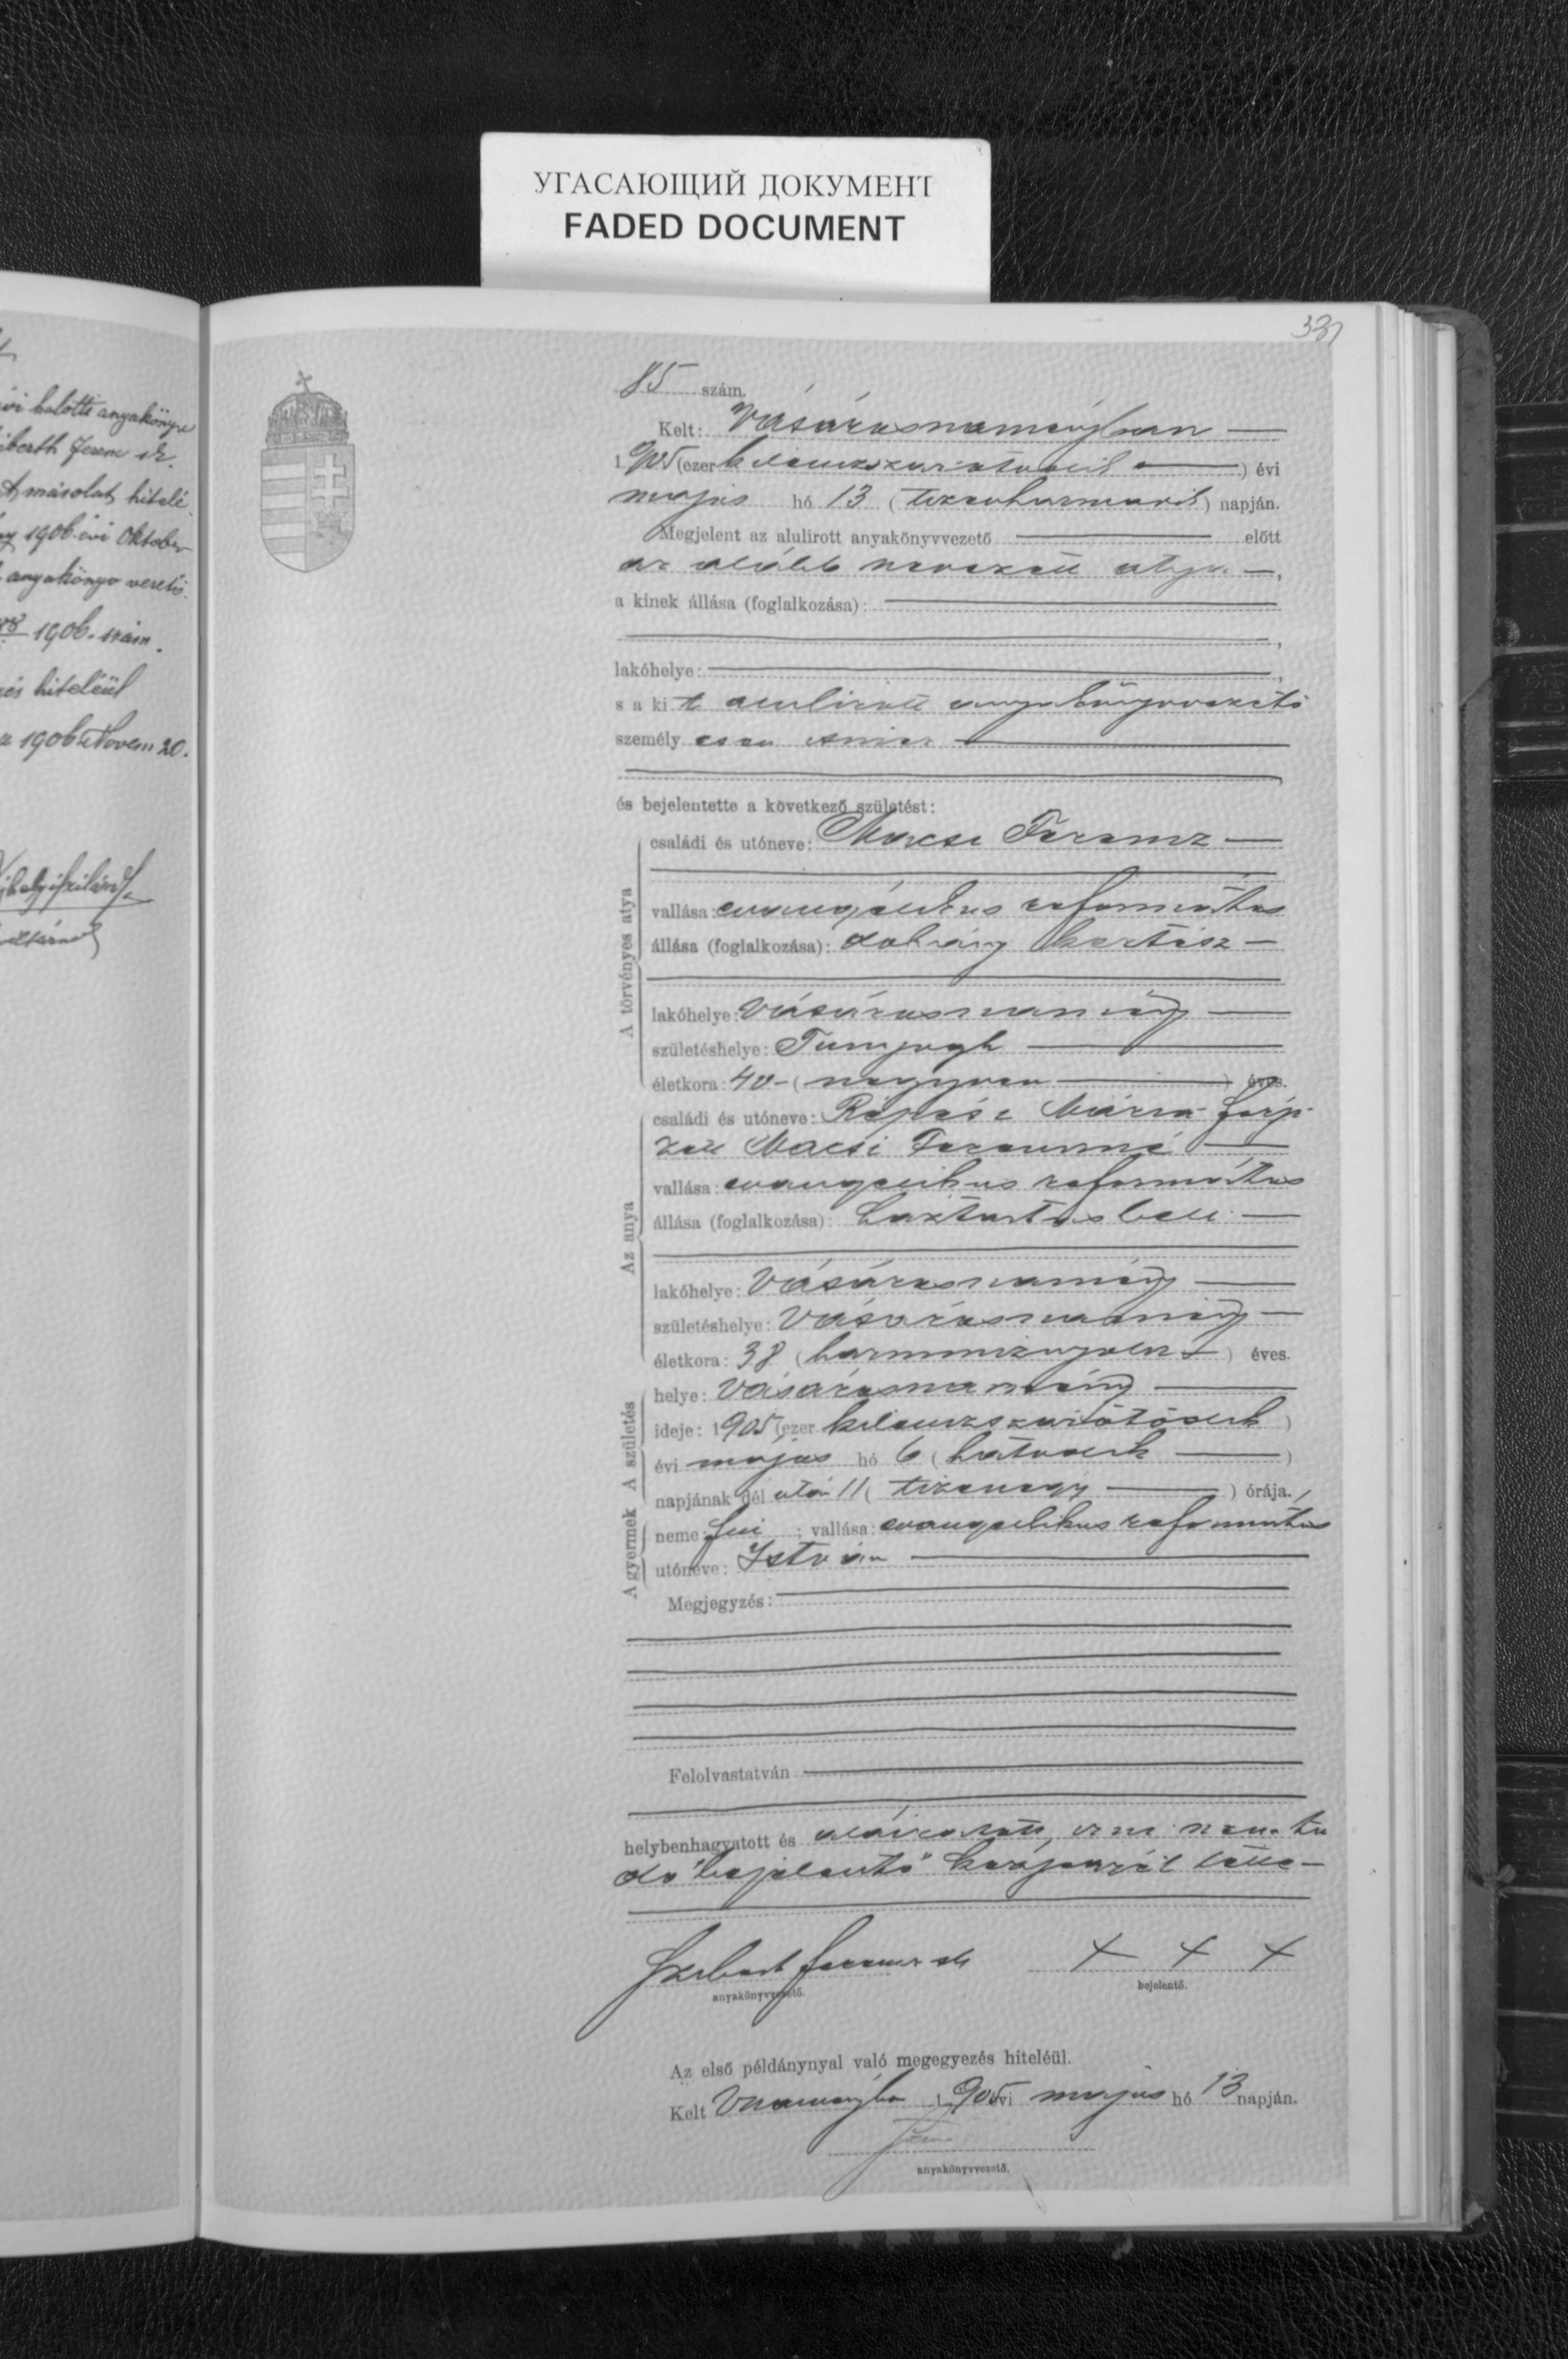 УГАСАЮЩИЙ ДОКУМЕНТ
FADED DOCUMENT
anyakönyv
Ferenc sk.
A másolat hitelé
1906 évi October
anyakönyv vezető.
1906. szám.
és hiteléül
1906 Novem 20.
85 szám.
Kelt: Vásárosnaményban
1905 (ezer kilenczszázötödik) évi
május hó 13 (tizenharmadik) napján.
Megjelent az alulirott anyakönyvvezető előtt
az alább nevezett atya,
a kinek állása (foglalkozása):
lakóhelye:
s a kit alulirott anyakönyvvezető
személyesen ismer
és bejelentette a következő születést:
A törvényes atya
családi és utóneve: Macsi Ferencz
vallása: evangélikus református
állása (foglalkozása): dohány kertész
lakóhelye: Vásárosnamény
születéshelye: Tunyogh
életkora: 40 (negyven) éves.
Az anya
családi és utóneve: Mária férj-
zett Macsi Ferenczné
vallása: evangelikus református
állása (foglalkozása): háztartásbeli
lakóhelye: Vásárosnamény
születéshelye: Vásárosnamény
életkora: 38 (harmincznyolcz) éves.
A születés
helye: Vásárosnamény
ideje: 1905 (ezer kilenczszázötödik)
évi május hó 6 (hatodik)
napjának dél után 11 (tizenegy) órája.
A gyermek
neme: fiú; vallása: evangelikus református
utóneve: István
Megjegyzés:
Felolvastatván
helybenhagyatott és aláiratott, irni nem tu
dó bejelentő kézjegyével
Ferencz sk
+ + +
anyakönyvvezető.
bejelentő.
Az első példánynyal való megegyezés hiteléül.
Kelt 1905 évi május hó 13 napján.
anyakönyvvezető.